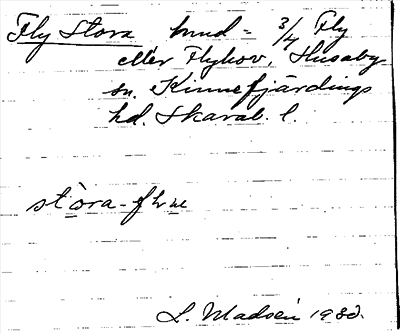 Fly Stora hmd = 3/4 Fly
eller Flyhov, Husaby
sn. Kinnefjärdings
hd. Skarab. l.
stòra-
L. Madsén 1930.